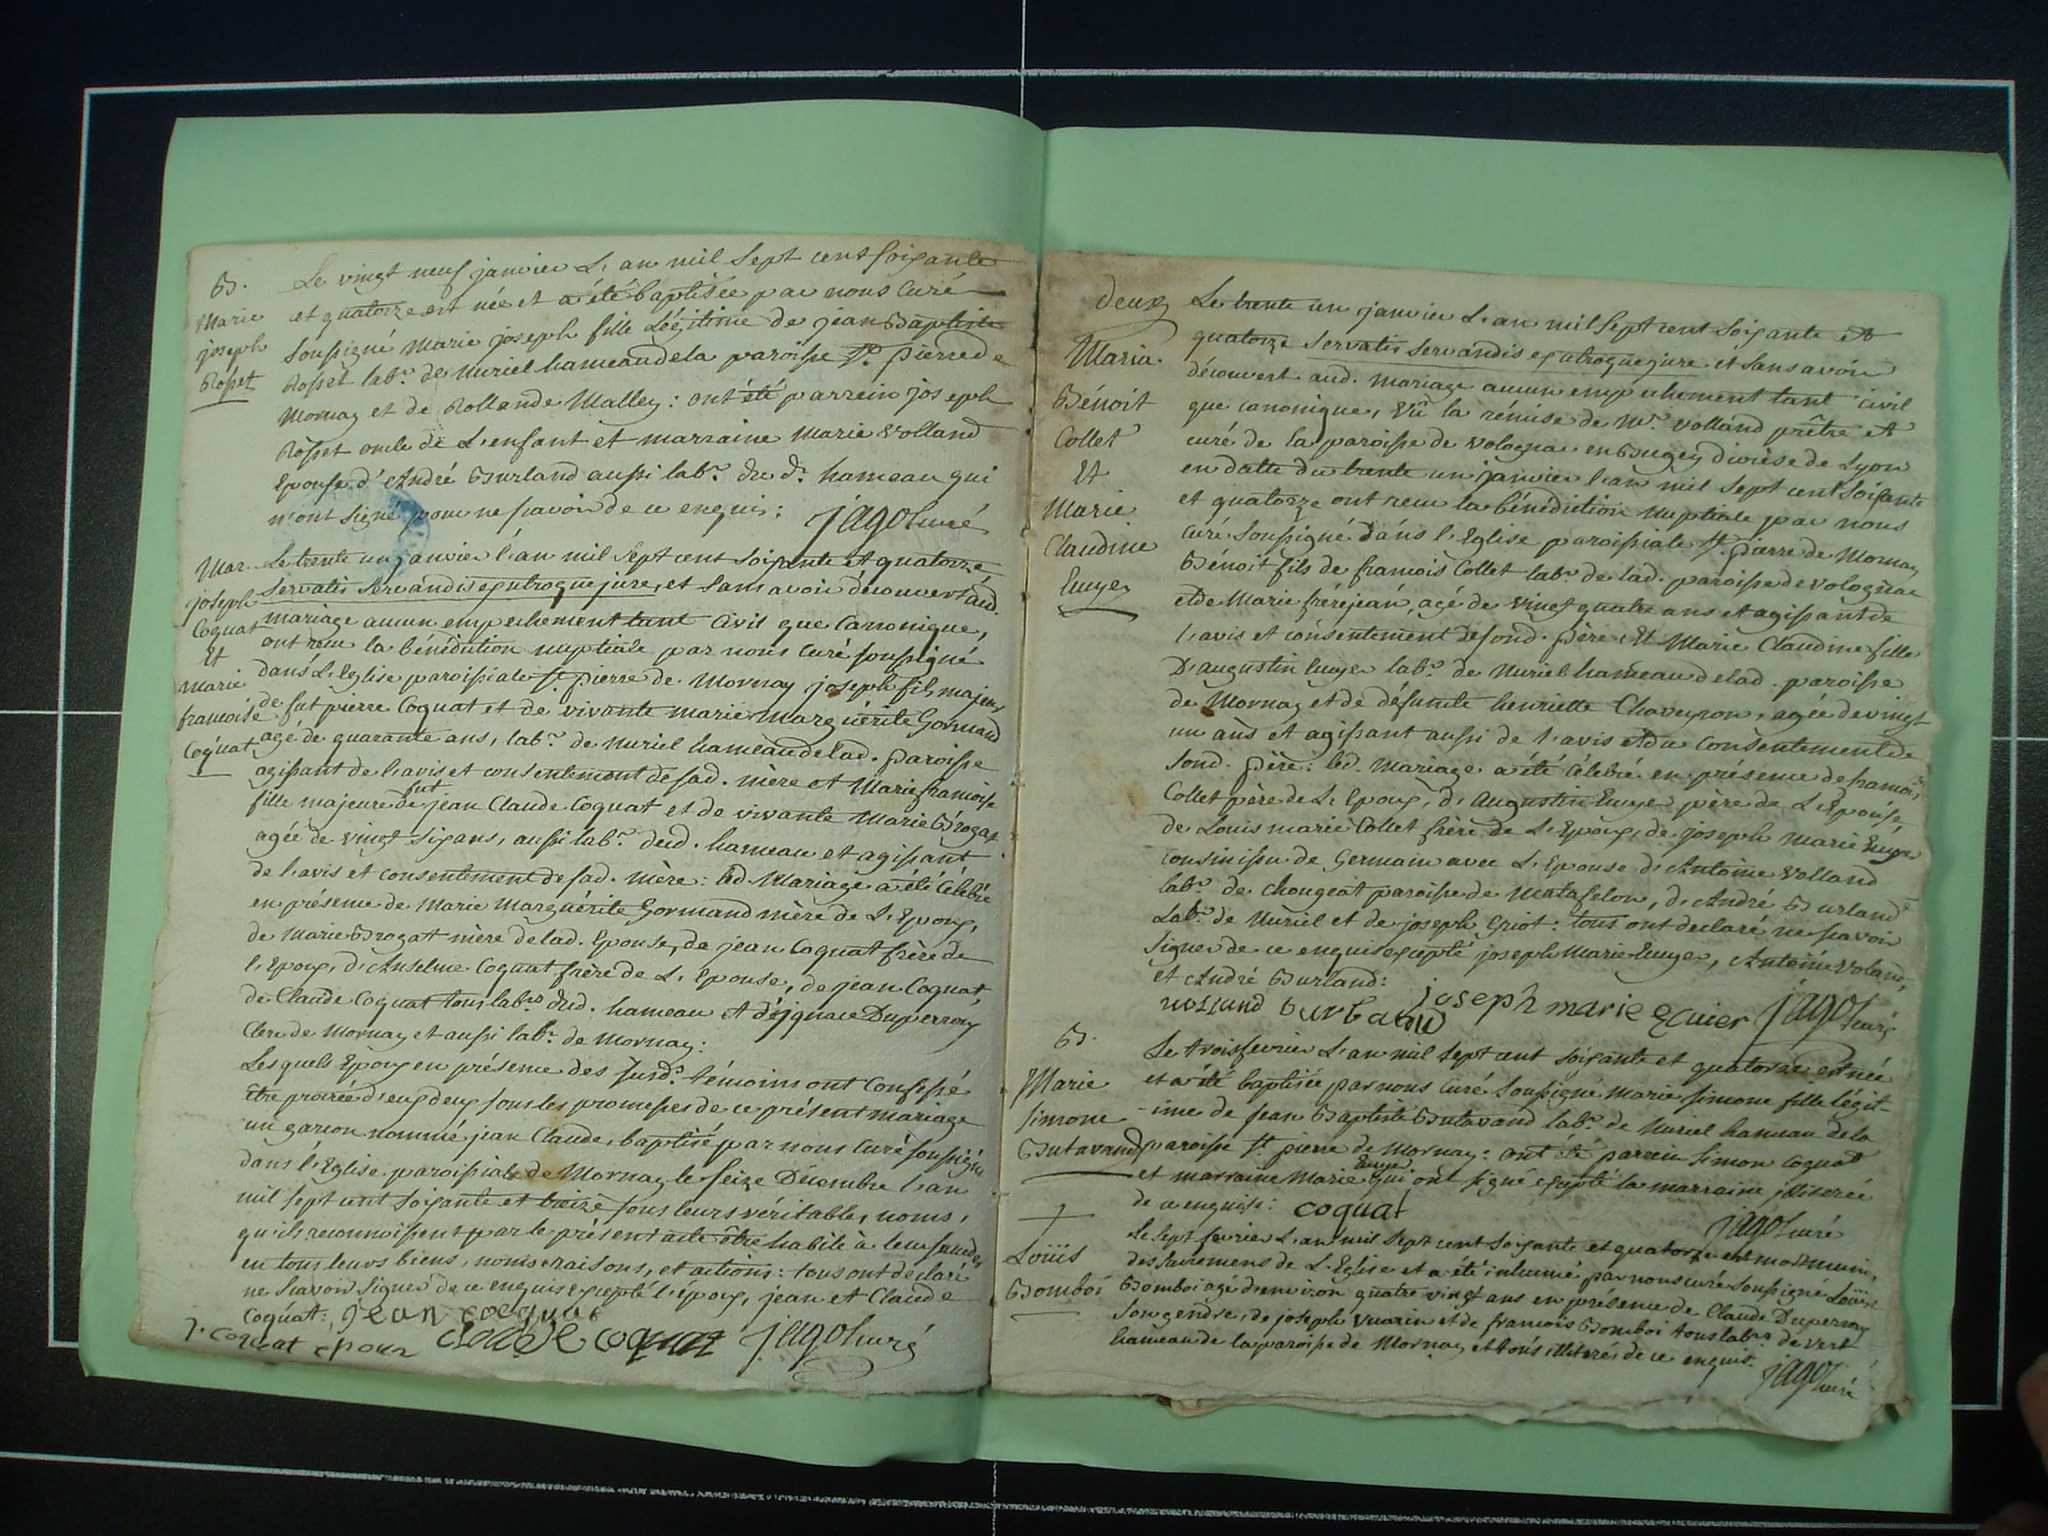 B.
Marie
joseph
Rosset
Le vingt neuf janvier L'an mil Sept cent soixante
et quatorze est née et a été baptisée par nous Curé
soussigné Marie joseph fille Légitime de jean Baptiste
Rosset labr. de Nuriel hameau de la paroisse St. pierre de
Mornay et de Rollande Malley: ont été parrein joseph
Rosset oncle de L'enfant et marraine Marie Volland
Epouse d'André Burland aussi labr. du dt. hameau qui
n'ont signé pour ne scavoir de ce enquis: jagot curé
Mar.
joseph
Coquat
Et
Marie
francoise
Coquat
Le trente un janvier l'an mil Sept cent soixante et quatorze
servatis servandis ex utroque jure, et sans avoir découvert aud.
mariage aucun empechement tant Civil que Canonique,
ont recu la bénédiction nuptiale par nous Curé soussigné
dans L'Eglise paroissiale St. pierre de Mornay joseph fils majeur
de fut pierre Coquat et de vivante marie Marguérite Gormand
agé de quarante ans, labr. de Nuriel hameau de lad. paroisse
agissant de l'avis et consentement de sad. mère et Marie francoise
fille majeure de fut jean Claude Coquat et de vivante Marie Brogat
agée de vingt six ans, aussi labr. dud. hameau et agissant
de l'avis et consentement de sad. mère: led Mariage a été Célébré
en présence de Marie Marguérite Gormand mère de L'Epoux,
de Marie Brogat mère de lad. Epouse, de jean Coquat frère de
l'Epoux, d'Anselme Coquat frère de L'Epouse, de jean Coquat,
de Claude Coquat tous labrs. dud. hameau et d'ignace Duperray
Clerc de Mornay et aussi labr. de Mornay:
Lesquels Epoux en présence des susds. témoins ont Confessé
être procréé d'eux deux sous les promesses de ce présent mariage
un garcon nommé jean Claude, baptisé par nous Curé soussigné
dans l'Eglise paroissiale de Mornay le seize Décembre l'an
mil sept cent soixante et treize sous leurs véritables noms,
qu'ils reconnoissent par le présent acte être habile à leur succéder
en tous leurs biens, noms, raisons, et actions: tous ont déclaré
ne scavoir signer de ce enquis excepté l'époux, jean et Claude
Coquat: jean cocquat
j. coquat epoux claude coquat jagot curé
deux
Maria.
Bénoit
Collet
Et
Marie
Claudine
Euyer
Le trente un janvier L'an mil Sept cent soixante et
quatorze servatis servandis ex utroque jure et sans avoir
découvert aud. mariage aucun empechement tant civil
que canonique, Vû la rémise de Mr. Volland prêtre et
curé de la paroisse de Volognac en Bugey diocèse de Lyon
en datte du trente un janvier l'an mil Sept cent soixante
et quatorze ont recu la bénédiction nuptiale par nous
curé soussigné dans l'Eglise paroissiale St. pierre de Mornay
Bénoit fils de francois Collet labr. de lad. paroisse de volognac
et de Marie fréréjean, agé de vingt quatre ans et agissant de
l'avis et consentement de sond. père, Et Marie Claudine fille
D'augustin Euyer labr. de Nuriel hameau de lad. paroisse
de Mornay et de défunte henriette Chaveyron, agée de vingt
un ans et agissant aussi de l'avis et du consentement de
Sond. père: led. Mariage a été célébré en présence de francois
Collet père de L'Epoux, d'Augustin Euyer père de L'Epouse,
de Louis marie Collet frère de L'Epoux, de joseph Marie Euyer
cousin issu de Germain avec L'Epouse d'Antoine Volland
labr. de chougeat paroisse de Matafelon, d'André Burland
Labr. de Nuriel et de joseph Griot: tous ont declaré ne scavoir
signer de ce enquis excepté joseph Marie Euyer, Antoine Voland,
et André Burland:
volland burland joseph marie Ecuier jagot curé
B.
Marie
simone
Butavand
Le trois fevrier L'an mil sept cent soixante et quatorze est née
et a été baptisée par nous Curé soussigné Marie simone fille légit-
-ime de jean Baptiste Butavand labr. de Nuriel hameau de la
paroisse St. pierre de Mornay: ont été parrein simon Coquat
et marraine Marie Euyer qui ont signé excepté la marraine illiterée
de ce enquise: coquat
jagot curé
Loüis
Bomboi
Le sept fevrier L'an mil sept cent soixante et quatorze est mort muni
des sacremens de L'Eglise et a été inhumé par nous curé soussigné Loüis
Bomboi agé d'environ quatre vingt ans en présence de Claude Duperray
son gendre, de joseph Vuarin et de francois Bomboi tous labrs. de vert
hameau de la paroisse de Mornay et tous illiterés de ce enquis.
jagot curé